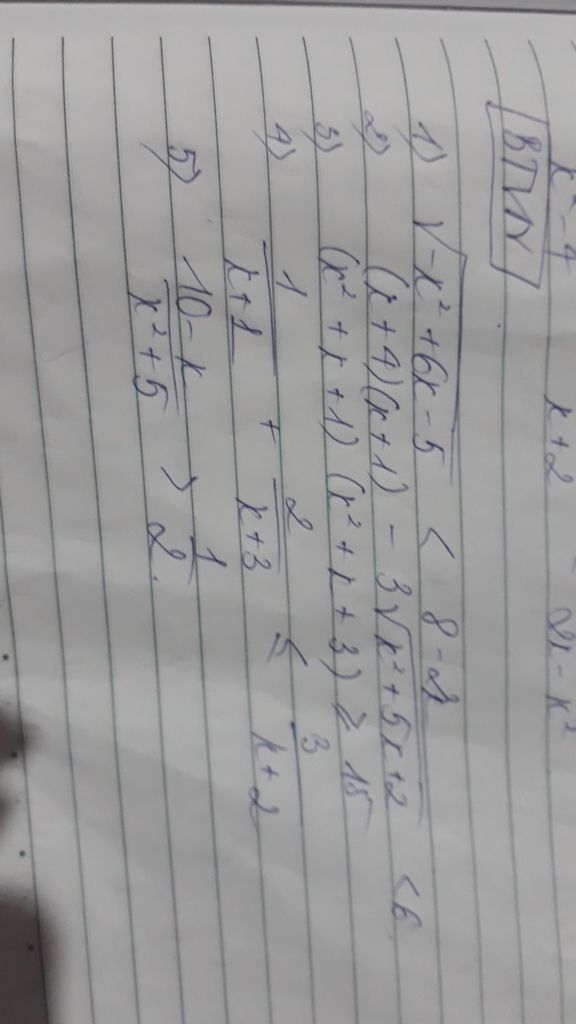 x² - 4 x + 2 2x - x²
BTVN
1) √-x² + 6x - 5 < 8 - 2x
2) (x + 4)(x + 1) - 3√x² + 5x + 2 < 6
3) (x² + x + 1)(x² + x + 3) ≥ 15
4) 1/x+1 + 2/x+3 ≤ 3/x+2
5) 10 - x/x² + 5 > 1/2